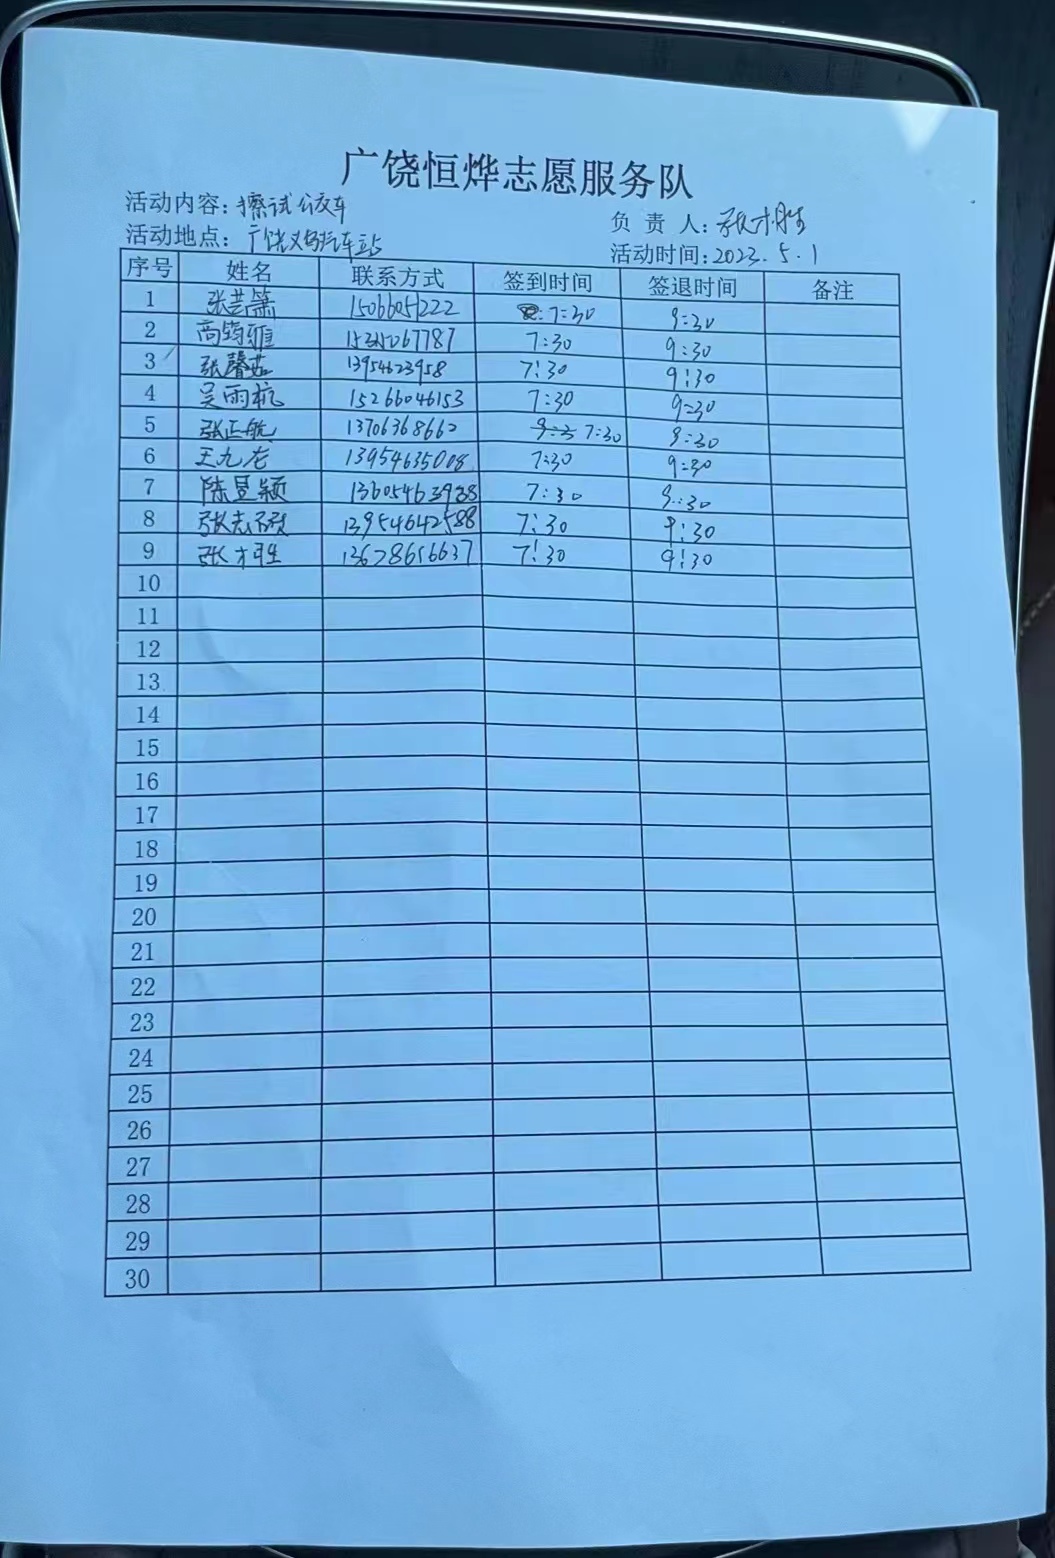 广饶恒烨志愿服务队
活动内容:擦试公交车 负责人:张相胜
活动地点:广饶义乌汽车站 活动时间:2023.5.1
序号 姓名 联系方式 签到时间 签退时间 备注
1 张芸箫 15066051222 7:30 9:30
2 高筠雅 7:30 9:30
3 张馨茹 13954623958 7:30 9:30
4 吴雨杭 15266046153 7:30 9:30
5 张正航 13706368662 7:30 9:30
6 王九龙 13954635008 7:30 9:30
7 陈昱颖 7:30 9:30
8 张志硕 13954642588 7:30 9:30
9 张 7:30 9:30
10
11
12
13
14
15
16
17
18
19
20
21
22
23
24
25
26
27
28
29
30